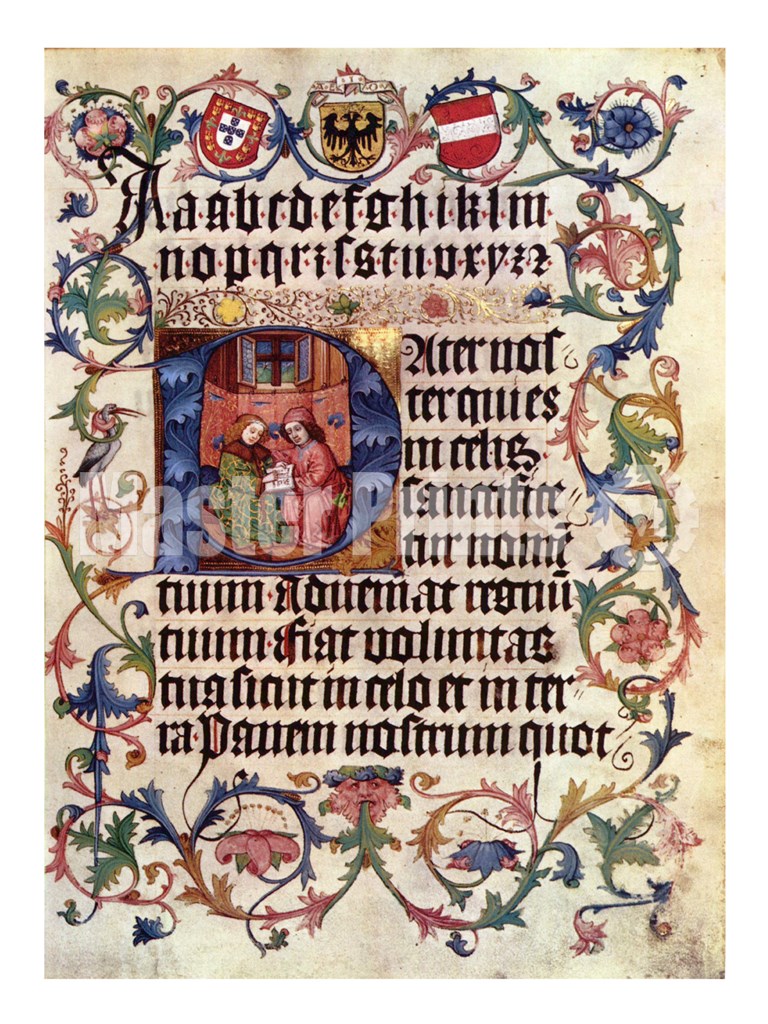 A a·a·b·c·d·e·f·g·h·i·k·l·m
n·o·p·q·r·ꝛ·ſ·s·t·u·v·x·y·z·z
PAter noſ
ter qui es
in celis·
ſanctifice
tur nomē
tuum·Adueniat regnū
tuum·fiat voluntas
tua ſicut in celo et in ter
ra·Panem noſtrum quot
Master Prints